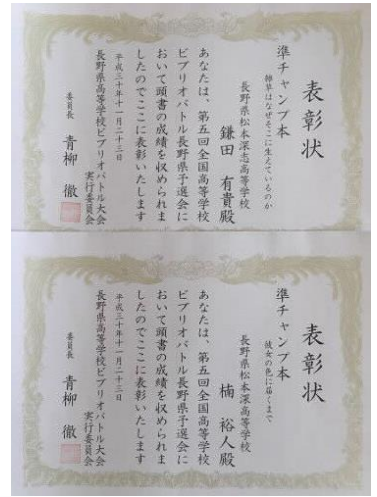 表彰状
準チャンプ本
雑草はなぜそこに生えているのか
長野県松本深志高等学校
鎌田 有貴殿
あなたは、第五回全国高等学校
ビブリオバトル長野県予選会に
おいて頭書の成績を収められま
したのでここに表彰いたします
平成三十年十一月二十三日
長野県高等学校ビブリオバトル大会
実行委員会
委員長 青柳 徹
表彰状
準チャンプ本
彼女の色に届くまで
長野県松本深志高等学校
楠 裕人殿
あなたは、第五回全国高等学校
ビブリオバトル長野県予選会に
おいて頭書の成績を収められま
したのでここに表彰いたします
平成三十年十一月二十三日
長野県高等学校ビブリオバトル大会
実行委員会
委員長 青柳 徹